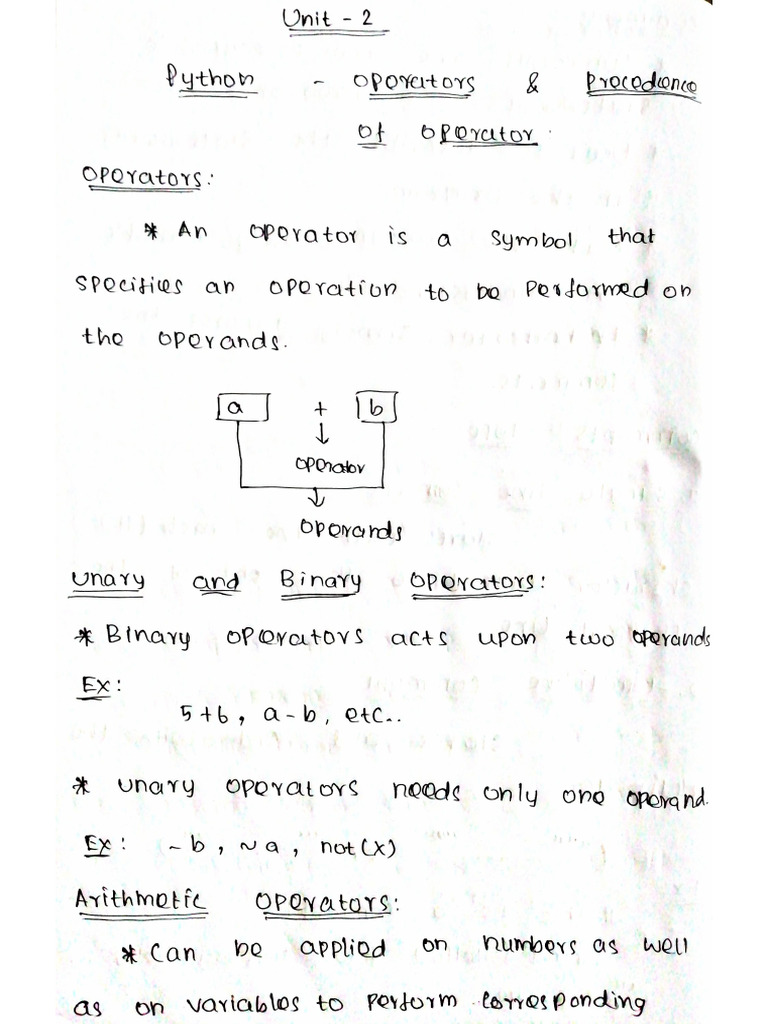 Unit - 2
Python - Operators & Procedence
Of Operator.
Operators:
* An operator is a symbol that
specifies an operation to be performed on
the operands.
a + b
operator
operands
Unary and Binary Operators:
* Binary operators acts upon two operands
Ex:
5+6, a-b, etc..
* Unary operators needs only one operand.
Ex: -b, ~a, not(x)
Arithmetic Operators:
* Can be applied on numbers as well
as on variables to perform corresponding